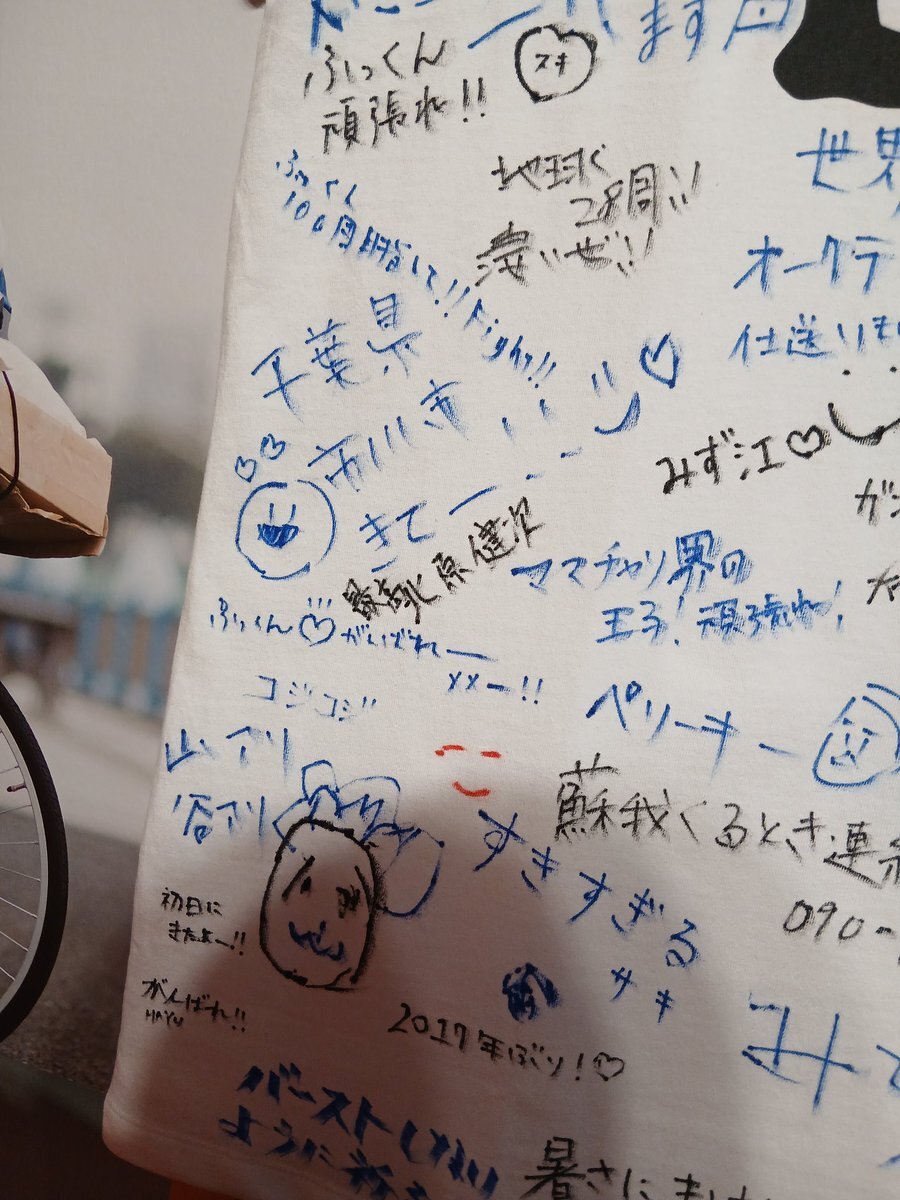 ます
ふっくん
頑張れ!!
スキ
地球
28周!!
凄いぜ!!
世界
ふっくん
100周目指して!!
オークテ
仕送り
千葉県
市川市
きてー
みず江♡
ママチャリ界の
王子!頑張れ!
原健次
ふっくん♡がんばれー
××ー!!
コジコジ
ペリーキー
山アリ
谷アリ
蘇我くるとき連絡
090-
すきすぎる
サキ
初日に
きたよー!!
がんばれ!!
HAYU
2017年ぶり!♡
バーストしない
ように
暑さに